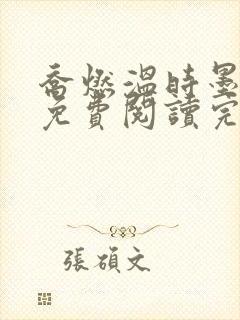 喬燃溫時墨
免費閱讀完
張碩文